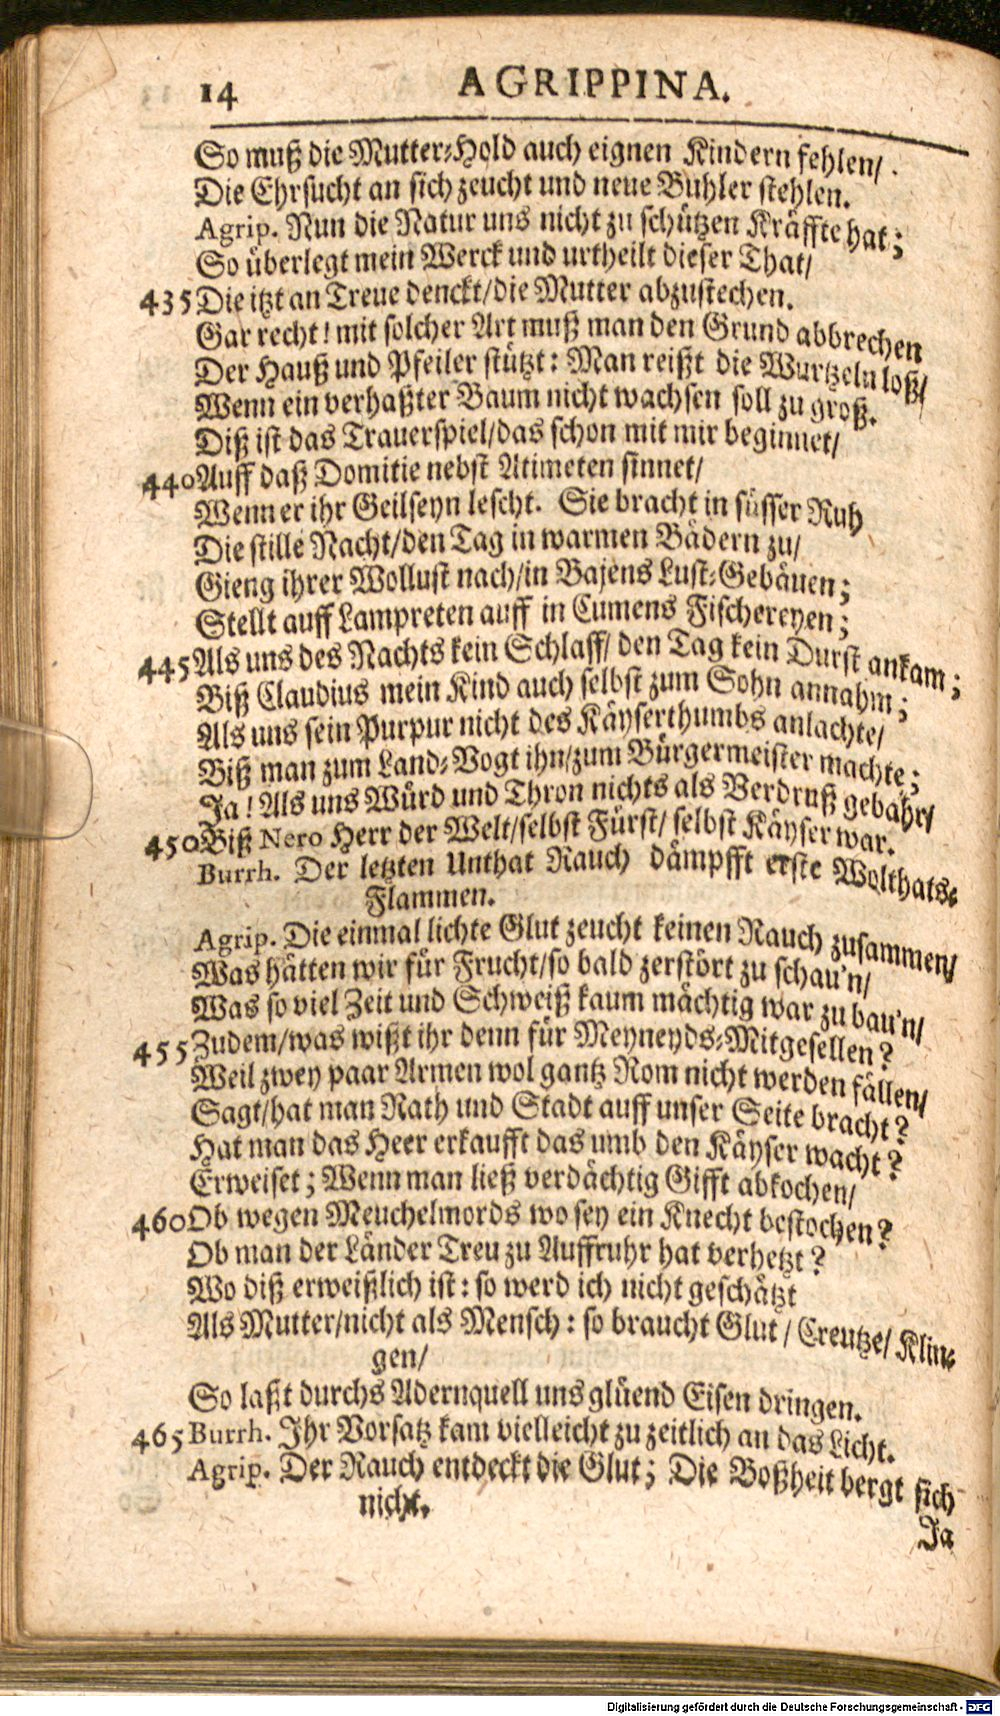 14 AGRIPPINA.
So muß die Mutter-Hold auch eignen Kindern fehlen/
Die Ehrsucht an sich zeucht und neue Buhler stehlen.
Agrip. Nun die Natur uns nicht zu schützen Kräffte hat;
So überlegt mein Werck und urtheilt dieser That/
435 Die itzt an Treue denckt/die Mutter abzustechen.
Gar recht! mit solcher Art muß man den Grund abbrechen
Der Hauß und Pfeiler stützt: Man reißt die Wurtzeln loß/
Wenn ein verhaßter Baum nicht wachsen soll zu groß.
Diß ist das Trauerspiel/das schon mit mir beginnet/
440 Auff daß Domitie nebst Atimeten sinnet/
Wenn er ihr Geilseyn lescht. Sie bracht in süsser Ruh
Die stille Nacht/den Tag in warmen Bädern zu/
Gieng ihrer Wollust nach/in Bajens Lust-Gebäuen;
Stellt auff Lampreten auff in Cumens Fischereyen;
445 Als uns des Nachts kein Schlaff/ den Tag kein Durst ankam;
Biß Claudius mein Kind auch selbst zum Sohn annahm;
Als uns sein Purpur nicht des Käyserthumbs anlachte/
Biß man zum Land-Vogt ihn/zum Bürgermeister machte;
Ja! Als uns Würd und Thron nichts als Verdruß gebahr/
450 Biß Nero Herr der Welt/selbst Fürst/ selbst Käyser war.
Burrh. Der letzten Unthat Rauch dämpfft erste Wolthats-
Flammen.
Agrip. Die einmal lichte Glut zeucht keinen Rauch zusammen/
Was hätten wir für Frucht/so bald zerstört zu schau'n/
Was so viel Zeit und Schweiß kaum mächtig war zu bau'n/
455 Zudem/was wißt ihr denn für Meyneyds-Mitgesellen?
Weil zwey paar Armen wol gantz Rom nicht werden fällen/
Sagt/hat man Rath und Stadt auff unser Seite bracht?
Hat man das Heer erkaufft das umb den Käyser wacht?
Erweiset; Wenn man ließ verdächtig Gifft abkochen/
460 Ob wegen Meuchelmords wo sey ein Knecht bestochen?
Ob man der Länder Treu zu Auffruhr hat verhetzt?
Wo diß erweißlich ist: so werd ich nicht geschätzt
Als Mutter/nicht als Mensch: so braucht Glut/ Creutze/ Klin-
gen/
So laßt durchs Adernquell uns glüend Eisen dringen.
465 Burrh. Ihr Vorsatz kam vielleicht zu zeitlich an das Licht.
Agrip. Der Rauch entdeckt die Glut; Die Boßheit bergt sich
nicht.
Ja
Digitalisierung gefördert durch die Deutsche Forschungsgemeinschaft - DFG